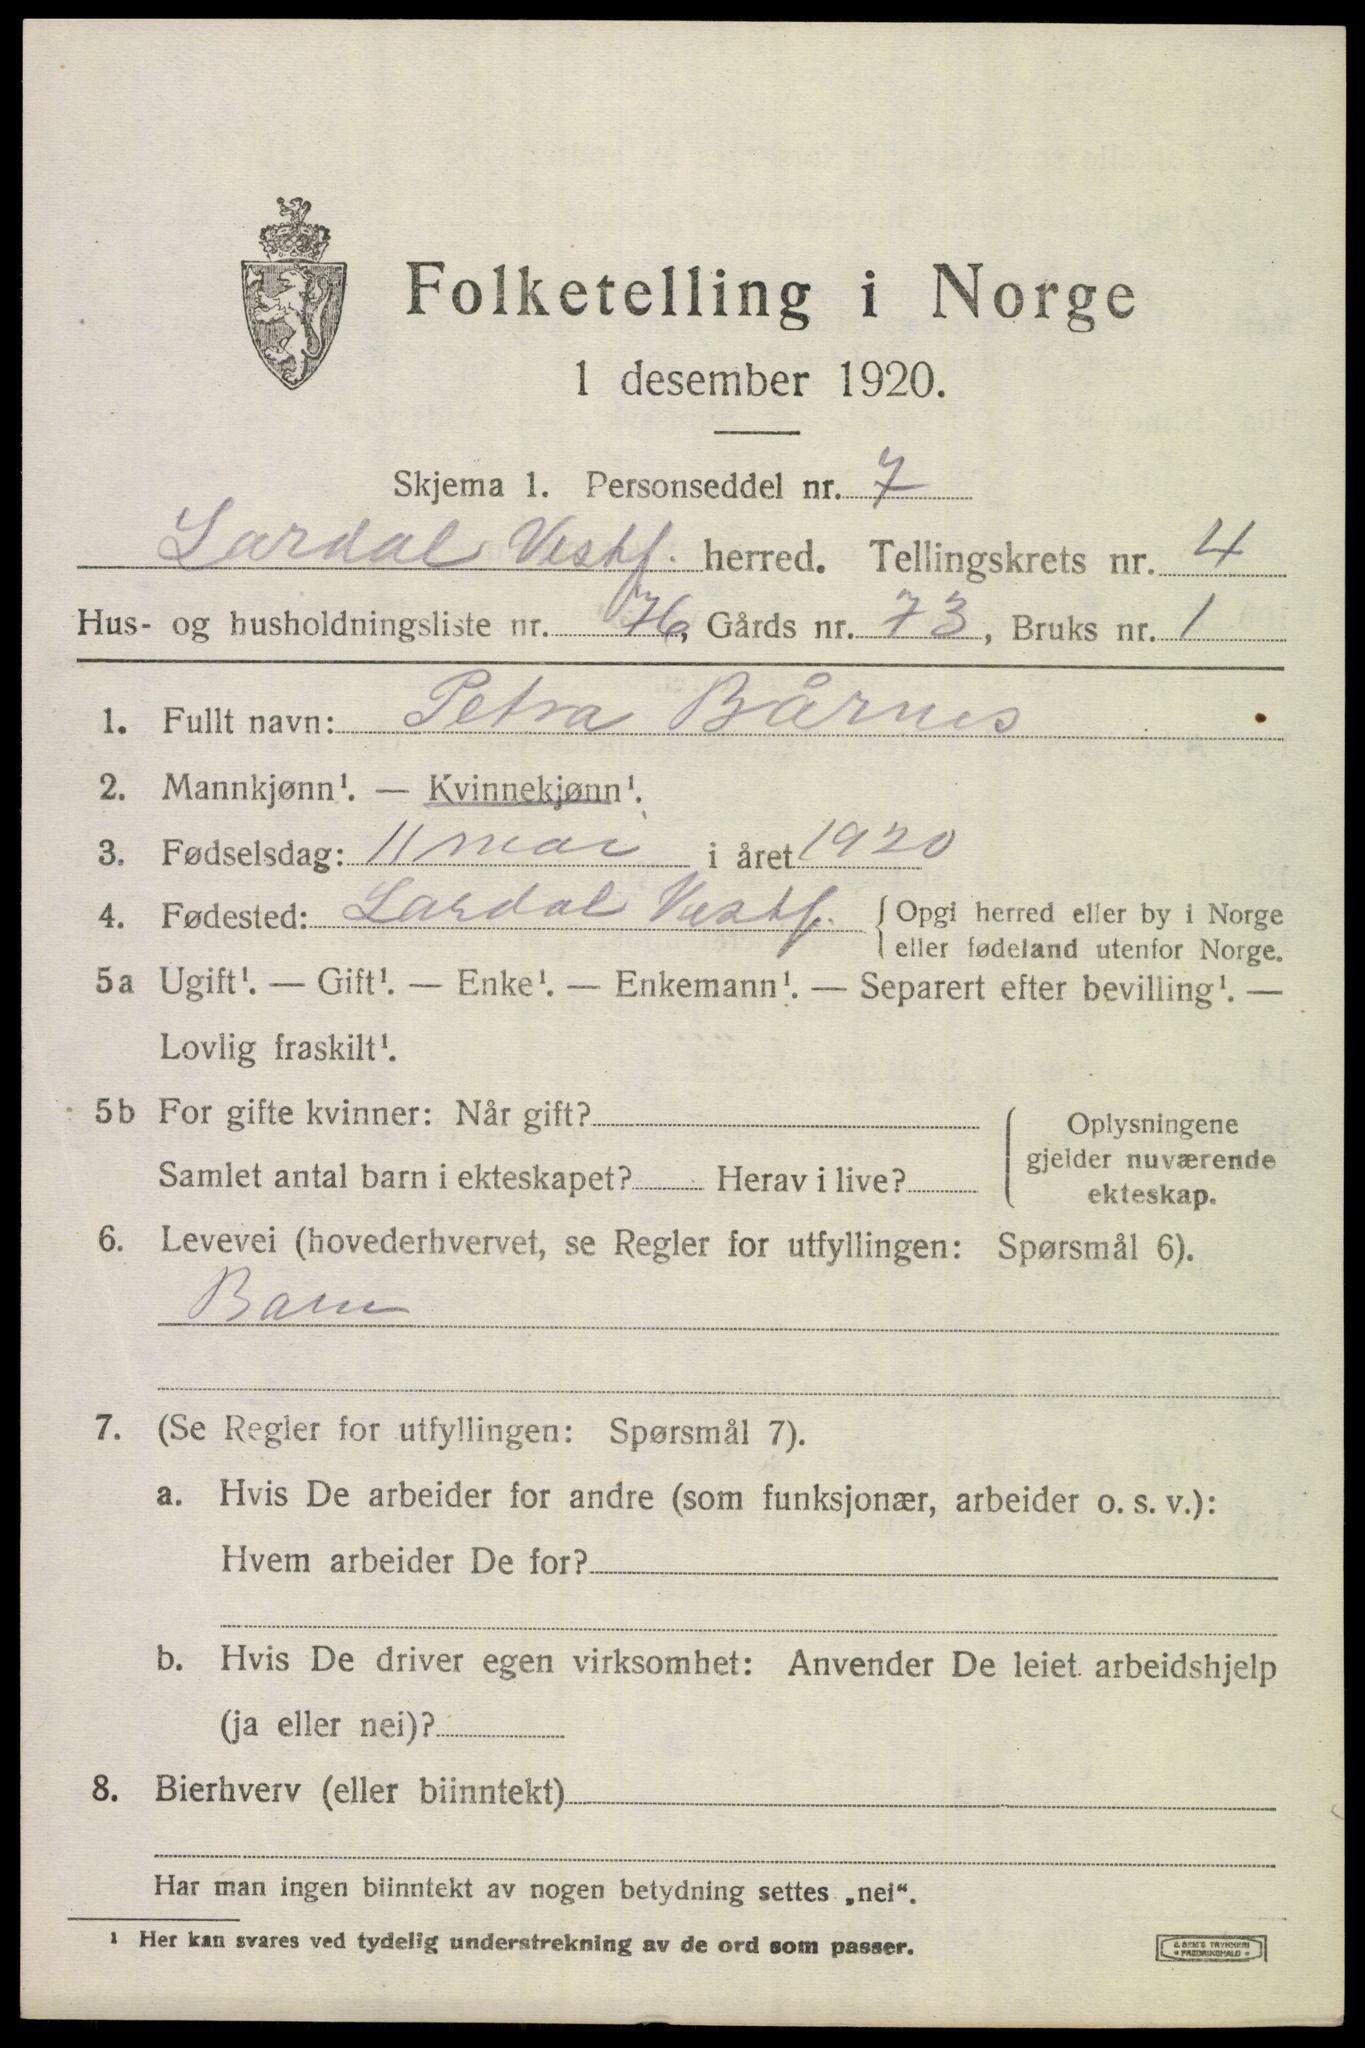 Folketelling i Norge
1 desember 1920.
Skjema 1. Personseddel nr. 7
Lardal Vestf. herred. Tellingskrets nr. 4
Hus- og husholdningsliste nr. 76, Gårds nr. 73, Bruks nr. 1
1. Fullt navn: Petra Bårnes
2. Mannkjønn¹. — Kvinnekjønn¹.
3. Fødselsdag: 11 mai i året 1920
4. Fødested: Lardal Vestf. { Opgi herred eller by i Norge
eller fødeland utenfor Norge.
5a Ugift¹. — Gift¹. — Enke¹. — Enkemann¹. — Separert efter bevilling¹. —
Lovlig fraskilt¹.
5b For gifte kvinner: Når gift?
Samlet antal barn i ekteskapet? Herav i live?
Oplysningene
gjelder nuværende
ekteskap.
6. Levevei (hovederhvervet, se Regler for utfyllingen: Spørsmål 6).
Barn
7. (Se Regler for utfyllingen: Spørsmål 7).
a. Hvis De arbeider for andre (som funksjonær, arbeider o. s. v.):
Hvem arbeider De for?
b. Hvis De driver egen virksomhet: Anvender De leiet arbeidshjelp
(ja eller nei)?
8. Bierhverv (eller biinntekt)
Har man ingen biinntekt av nogen betydning settes „nei“.
¹ Her kan svares ved tydelig understrekning av de ord som passer.
E. SEM'S TRYKKERI
• FREDRIKSHALD •